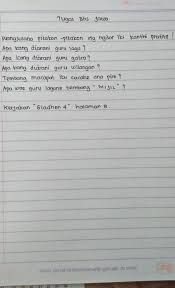 Tugas Bhs Jawa
Wangsulana pitakon-pitakon ing ngisor iki kanthi patitis!
Apa kang diarani guru lagu?
Apa kang diarani guru gatra?
Apa kang diarani guru wilangan?
Tembang macapat iku cacahe ana pira?
Apa wae guru lagune tembang "Mijil"?
Kerjakan "Gladhen 4" halaman 8.